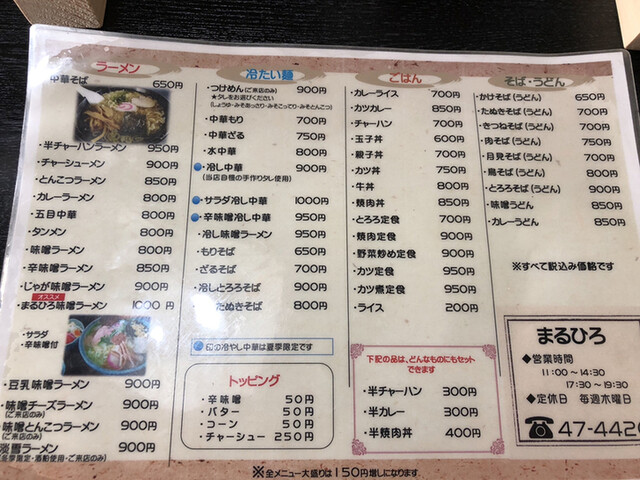 ラーメン
中華そば 650円
・半チャーハンラーメン 950円
・チャーシューメン 900円
・とんこつラーメン 850円
・カレーラーメン 800円
・五目中華 800円
・タンメン 800円
・味噌ラーメン 800円
・辛味噌ラーメン 850円
・じゃが味噌ラーメン 900円
オススメ
・まるひろ味噌ラーメン 1000円
・サラダ
辛味噌付
・豆乳味噌ラーメン 900円
・味噌チーズラーメン 900円
(ご来店のみ)
・味噌とんこつラーメン 900円
(ご来店のみ)
淡雪ラーメン 900円
(冬季限定・酒粕使用・ご来店のみ)
冷たい麺
・つけめん(ご来店のみ) 900円
★タレをお選びください
(しょうゆ・みそあっさり・みそこってり・みそとんこつ)
・中華もり 700円
・中華ざる 750円
・水中華 800円
・冷し中華 900円
(当店自慢の手作りタレ使用)
・サラダ冷し中華 1000円
・辛味噌冷し中華 950円
・冷し味噌ラーメン 950円
・もりそば 650円
・ざるそば 700円
・冷しとろろそば 900円
たぬきそば 800円
印の冷やし中華は夏季限定です
トッピング
・辛味噌 50円
・バター 50円
・コーン 50円
・チャーシュー 250円
ごはん
・カレーライス 700円
・カツカレー 850円
・チャーハン 700円
・玉子丼 600円
・親子丼 700円
・カツ丼 750円
・牛丼 800円
・焼肉丼 850円
・とろろ定食 700円
・焼肉定食 900円
・野菜炒め定食 900円
・カツ定食 950円
・カツ煮定食 950円
・ライス 200円
下記の品は、どんなものにもセット
できます
・半チャーハン 300円
・半カレー 300円
・半焼肉丼 400円
そば・うどん
・かけそば(うどん) 650円
・たぬきそば(うどん) 700円
・きつねそば(うどん) 700円
・肉そば(うどん) 750円
・月見そば(うどん) 700円
・鳥そば(うどん) 800円
・とろろそば(うどん) 900円
・味噌うどん 850円
・カレーうどん 850円
※すべて税込み価格です
まるひろ
◆営業時間
11:00～14:30
17:30～19:30
◆定休日 毎週木曜日
☎47-4420
※全メニュー大盛りは150円増しになります